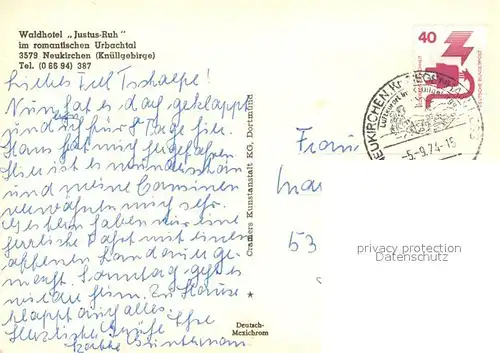 Waldhotel „Justus-Ruh"
im romantischen Urbachtal
3579 Neukirchen (Knüllgebirge)
Tel. (0 66 94) 387
Liebes Frl. Tschalpe!
Nun hat es doch geklappt
und ich für 8 Tage hier.
Hans hat mich hergefahren.
Hier ist es wunderschön
und meine Cousinen
verwöhnen mich sehr.
Gestern haben wir eine
herrliche Fahrt mit einem
offenen Landauer ge-
macht. Sonntag geht es
wieder heim. Zu Hause
klappt auch alles.
Herzliche Grüße Ihre
Cramers Kunstanstalt KG, Dortmund
Deutsch-
Mexichrom
40
DEUTSCHE BUNDESPOST
NEUKIRCHEN, KR ZIEGENHAIN
Luftkurort
-5.-9.74-15
Frau
Mar
53
privacy protection
Datenschutz